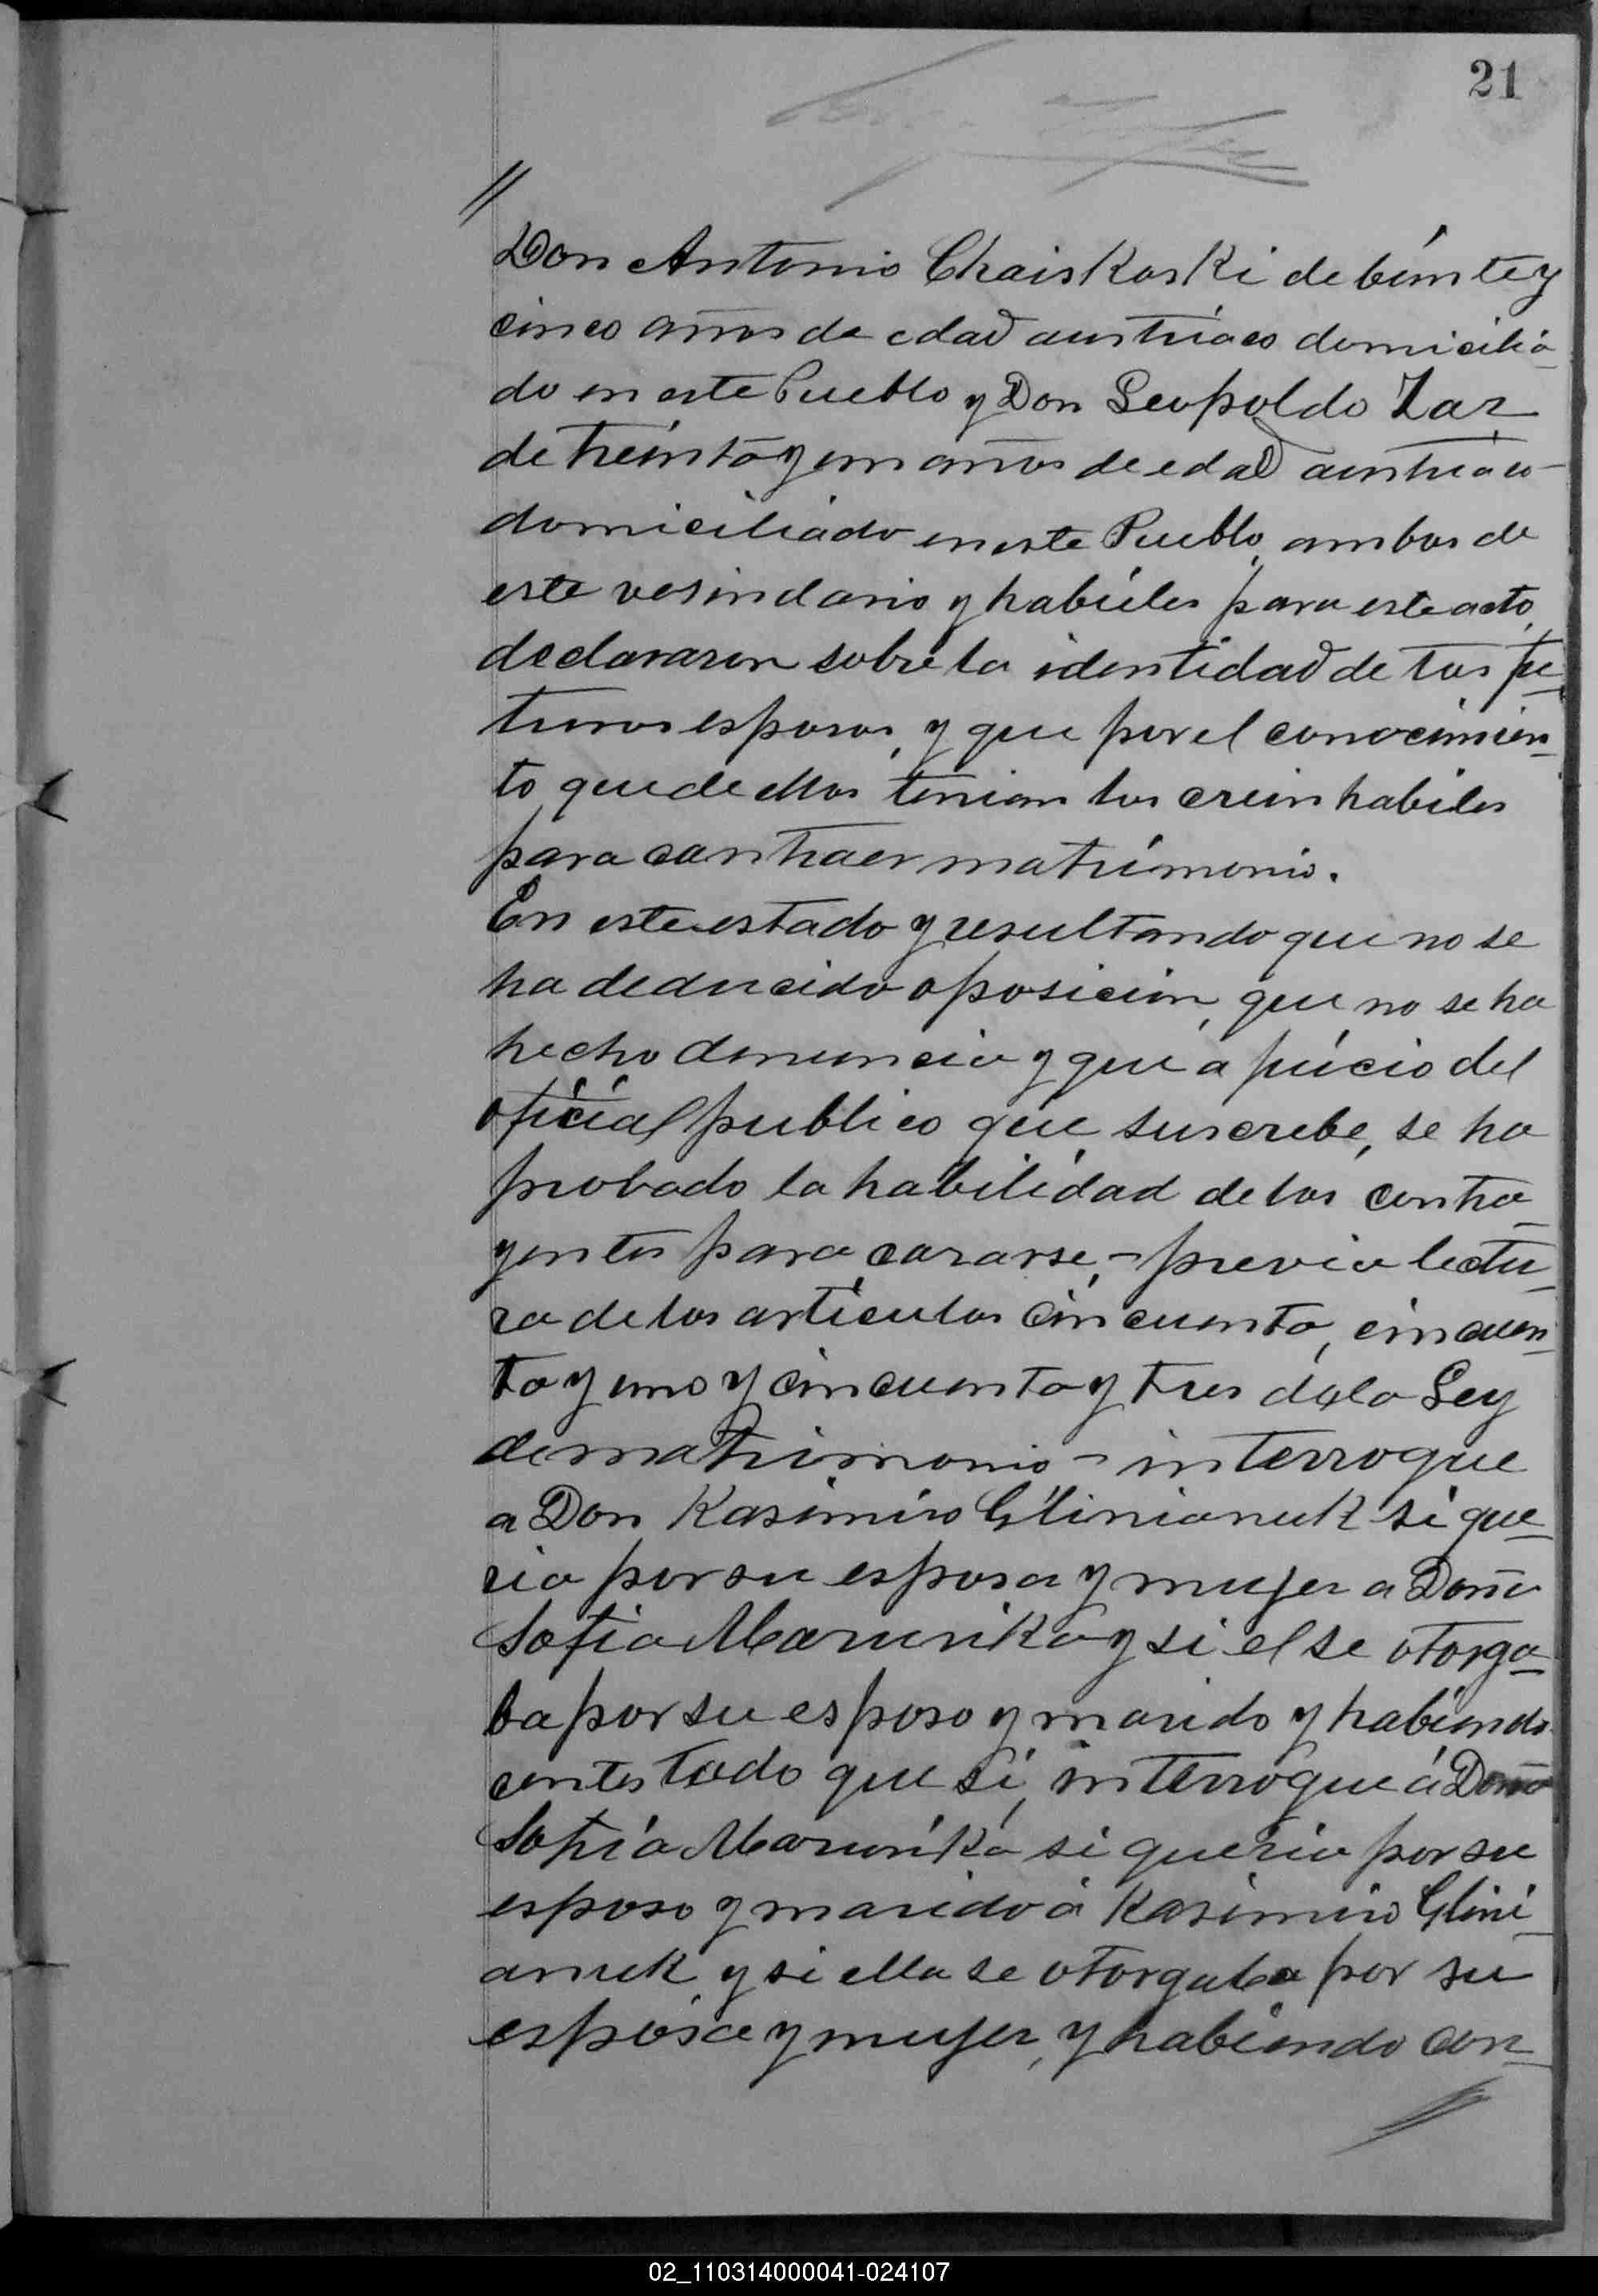 21
//
Don Antonio Chaiskoski de beinte y
cinco años de edad austriaco domicilia-
do en este Pueblo y Don Leopoldo Zar
de treinta y un años de edad austriaco
domiciliado en este Pueblo, ambos de
este vesindario y habiles para este acto,
declararon sobre la identidad de los fu-
turos esposos, y que por el conocimien-
to que de ellos tenian los crein habiles
para contraer matrimonio.
En este estado y resultando que no se
ha deducido oposicion, que no se ha
hecho denuncia y que a juicio del
oficial publico que suscrebe, se ha
probado la habilidad de los contra-
yentes para casarse, - previa lectu-
ra de los articulos cincuenta, cincuen-
ta y uno y cincuenta y tres de la Ley
de matrimonio - interroque
a Don Kasimiro Glinianuk si que-
ria por su esposa y mujer a Doña
Sofia Marunika y si el se otorga-
ba por su esposo y marido y habiendo
contestado que si, interroque á Doña
Sofia Marunika si queria por su
esposo y marido á Kasimiro Glini-
anuk y si ella se otorgaba por su
esposa y mujer, y habiendo con-
//
02_110314000041-024107